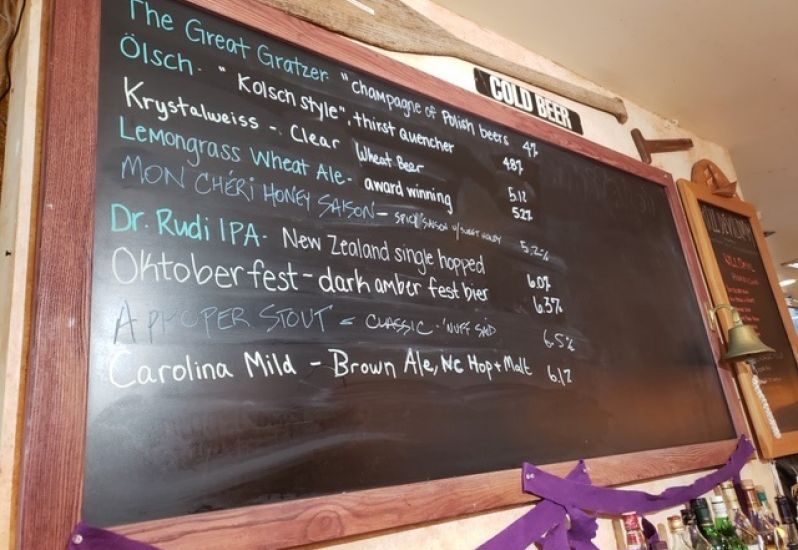 The Great Gratzer- "champagne of Polish beers 4%
Ölsch- "Kolsch style", thirst quencher 4.8%
Krystalweiss -. Clear Wheat Beer 5.1%
Lemongrass Wheat Ale- award winning 5.2%
MON CHÉRI HONEY SAISON - SPICY SAISON w/ SWEET HONEY 5.2%
Dr. Rudi IPA- New Zealand single hopped 6.0%
Oktoberfest - dark amber fest bier 6.3%
A PROPER STOUT - CLASSIC - 'NUFF SAID 6.5%
Carolina Mild - Brown Ale, NC Hop + Malt 6.1%
COLD BEER